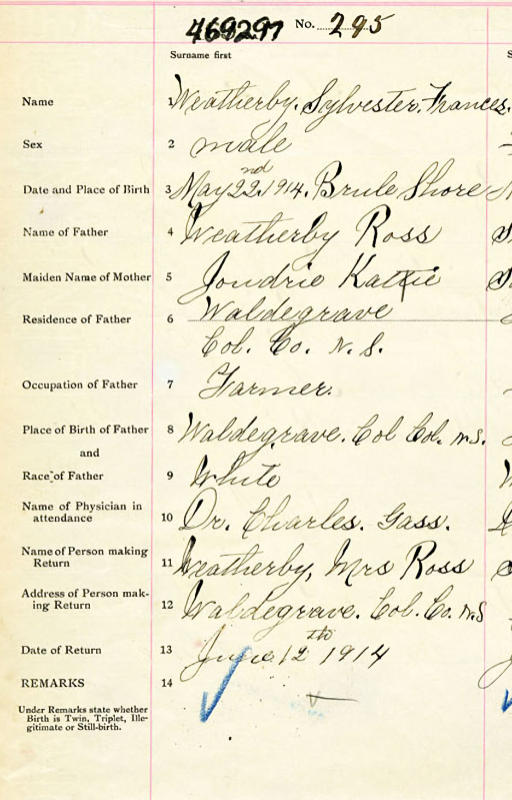 469297 No. 295
Surname first
Name 1 Weatherby. Sylvester. Frances.
Sex 2 male
Date and Place of Birth 3 May 22nd 1914. Brule Shore
Name of Father 4 Weatherby Ross
Maiden Name of Mother 5 Jondrie Kattie
Residence of Father 6 Waldegrave
Col. Co. N. S.
Occupation of Father 7 Farmer.
Place of Birth of Father 8 Waldegrave. Col Col. N.S.
and
Race of Father 9 White
Name of Physician in
attendance 10 Dr. Charles. Gass.
Name of Person making
Return 11 Weatherby, Mrs Ross
Address of Person mak-
ing Return 12 Waldegrave. Col. Co. N.S
Date of Return 13 June 12th 1914
REMARKS 14
Under Remarks state whether
Birth is Twin, Triplet, Ille-
gitimate or Still-birth.